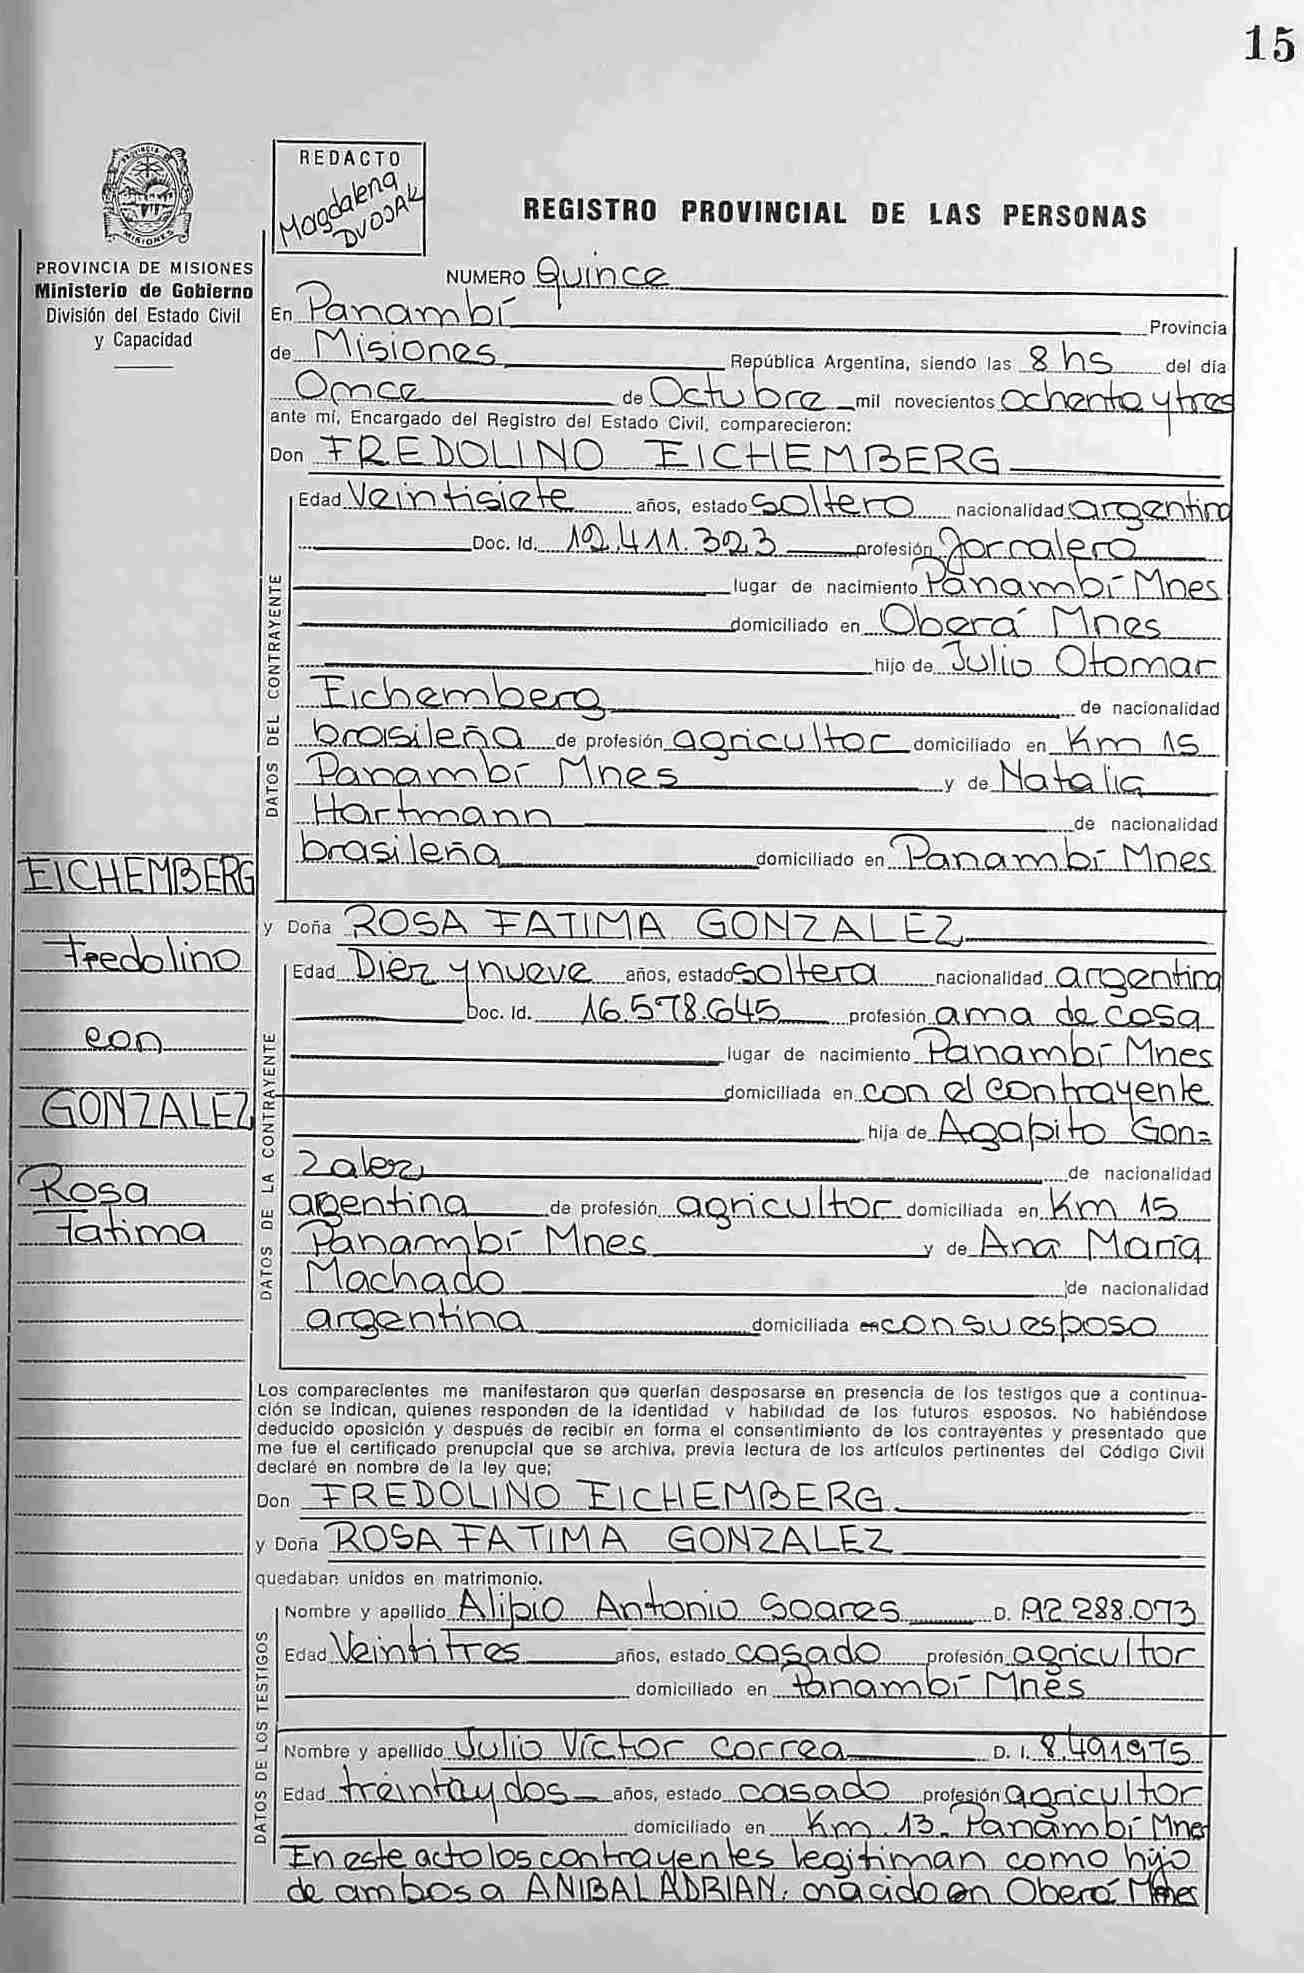 15
PROVINCIA DE MISIONES
Ministerio de Gobierno
División del Estado Civil
y Capacidad
REDACTO
Magdalena
DVOJAK
REGISTRO PROVINCIAL DE LAS PERSONAS
NUMERO Quince
En Panambí Provincia
de Misiones República Argentina, siendo las 8 hs del día
Once de Octubre mil novecientos ochenta y tres
ante mí, Encargado del Registro del Estado Civil, comparecieron:
Don FREDOLINO EICHEMBERG
DATOS DEL CONTRAYENTE
Edad Veintisiete años, estado soltero nacionalidad argentina
Doc. Id. 12.411.323 profesión Jornalero
lugar de nacimiento Panambí Mnes
domiciliado en Oberá Mnes
hijo de Julio Otomar
Eichemberg de nacionalidad
brasileña de profesión agricultor domiciliado en Km 15
Panambí Mnes y de Natalia
Hartmann de nacionalidad
brasileña domiciliado en Panambí Mnes
EICHEMBERG
Fredolino
con
GONZALEZ
Rosa
Fatima
y Doña ROSA FATIMA GONZALEZ
DATOS DE LA CONTRAYENTE
Edad Diez y nueve años, estado soltera nacionalidad argentina
Doc. Id. 16.578.645 profesión ama de casa
lugar de nacimiento Panambí Mnes
domiciliada en con el contrayente
hija de Agapito Gon=
zalez de nacionalidad
argentina de profesión agricultor domiciliada en Km 15
Panambí Mnes y de Ana María
Machado de nacionalidad
argentina domiciliada en con su esposo
Los comparecientes me manifestaron que querían desposarse en presencia de los testigos que a continua-
ción se indican, quienes responden de la identidad y habilidad de los futuros esposos. No habiéndose
deducido oposición y después de recibir en forma el consentimiento de los contrayentes y presentado que
me fue el certificado prenupcial que se archiva, previa lectura de los artículos pertinentes del Código Civil
declaré en nombre de la ley que;
Don FREDOLINO EICHEMBERG
y Doña ROSA FATIMA GONZALEZ
quedaban unidos en matrimonio.
DATOS DE LOS TESTIGOS
Nombre y apellido Alipio Antonio Soares D. 92 288.073
Edad Veintitres años, estado casado profesión agricultor
domiciliado en Panambí Mnes
Nombre y apellido Julio Víctor Correa D. I. 8.491975
Edad treinta y dos años, estado casado profesión agricultor
domiciliado en Km 13. Panambí Mnes
En este acto los contrayentes legitiman como hijo
de ambos a ANIBAL ADRIAN, nacido en Oberá Mnes